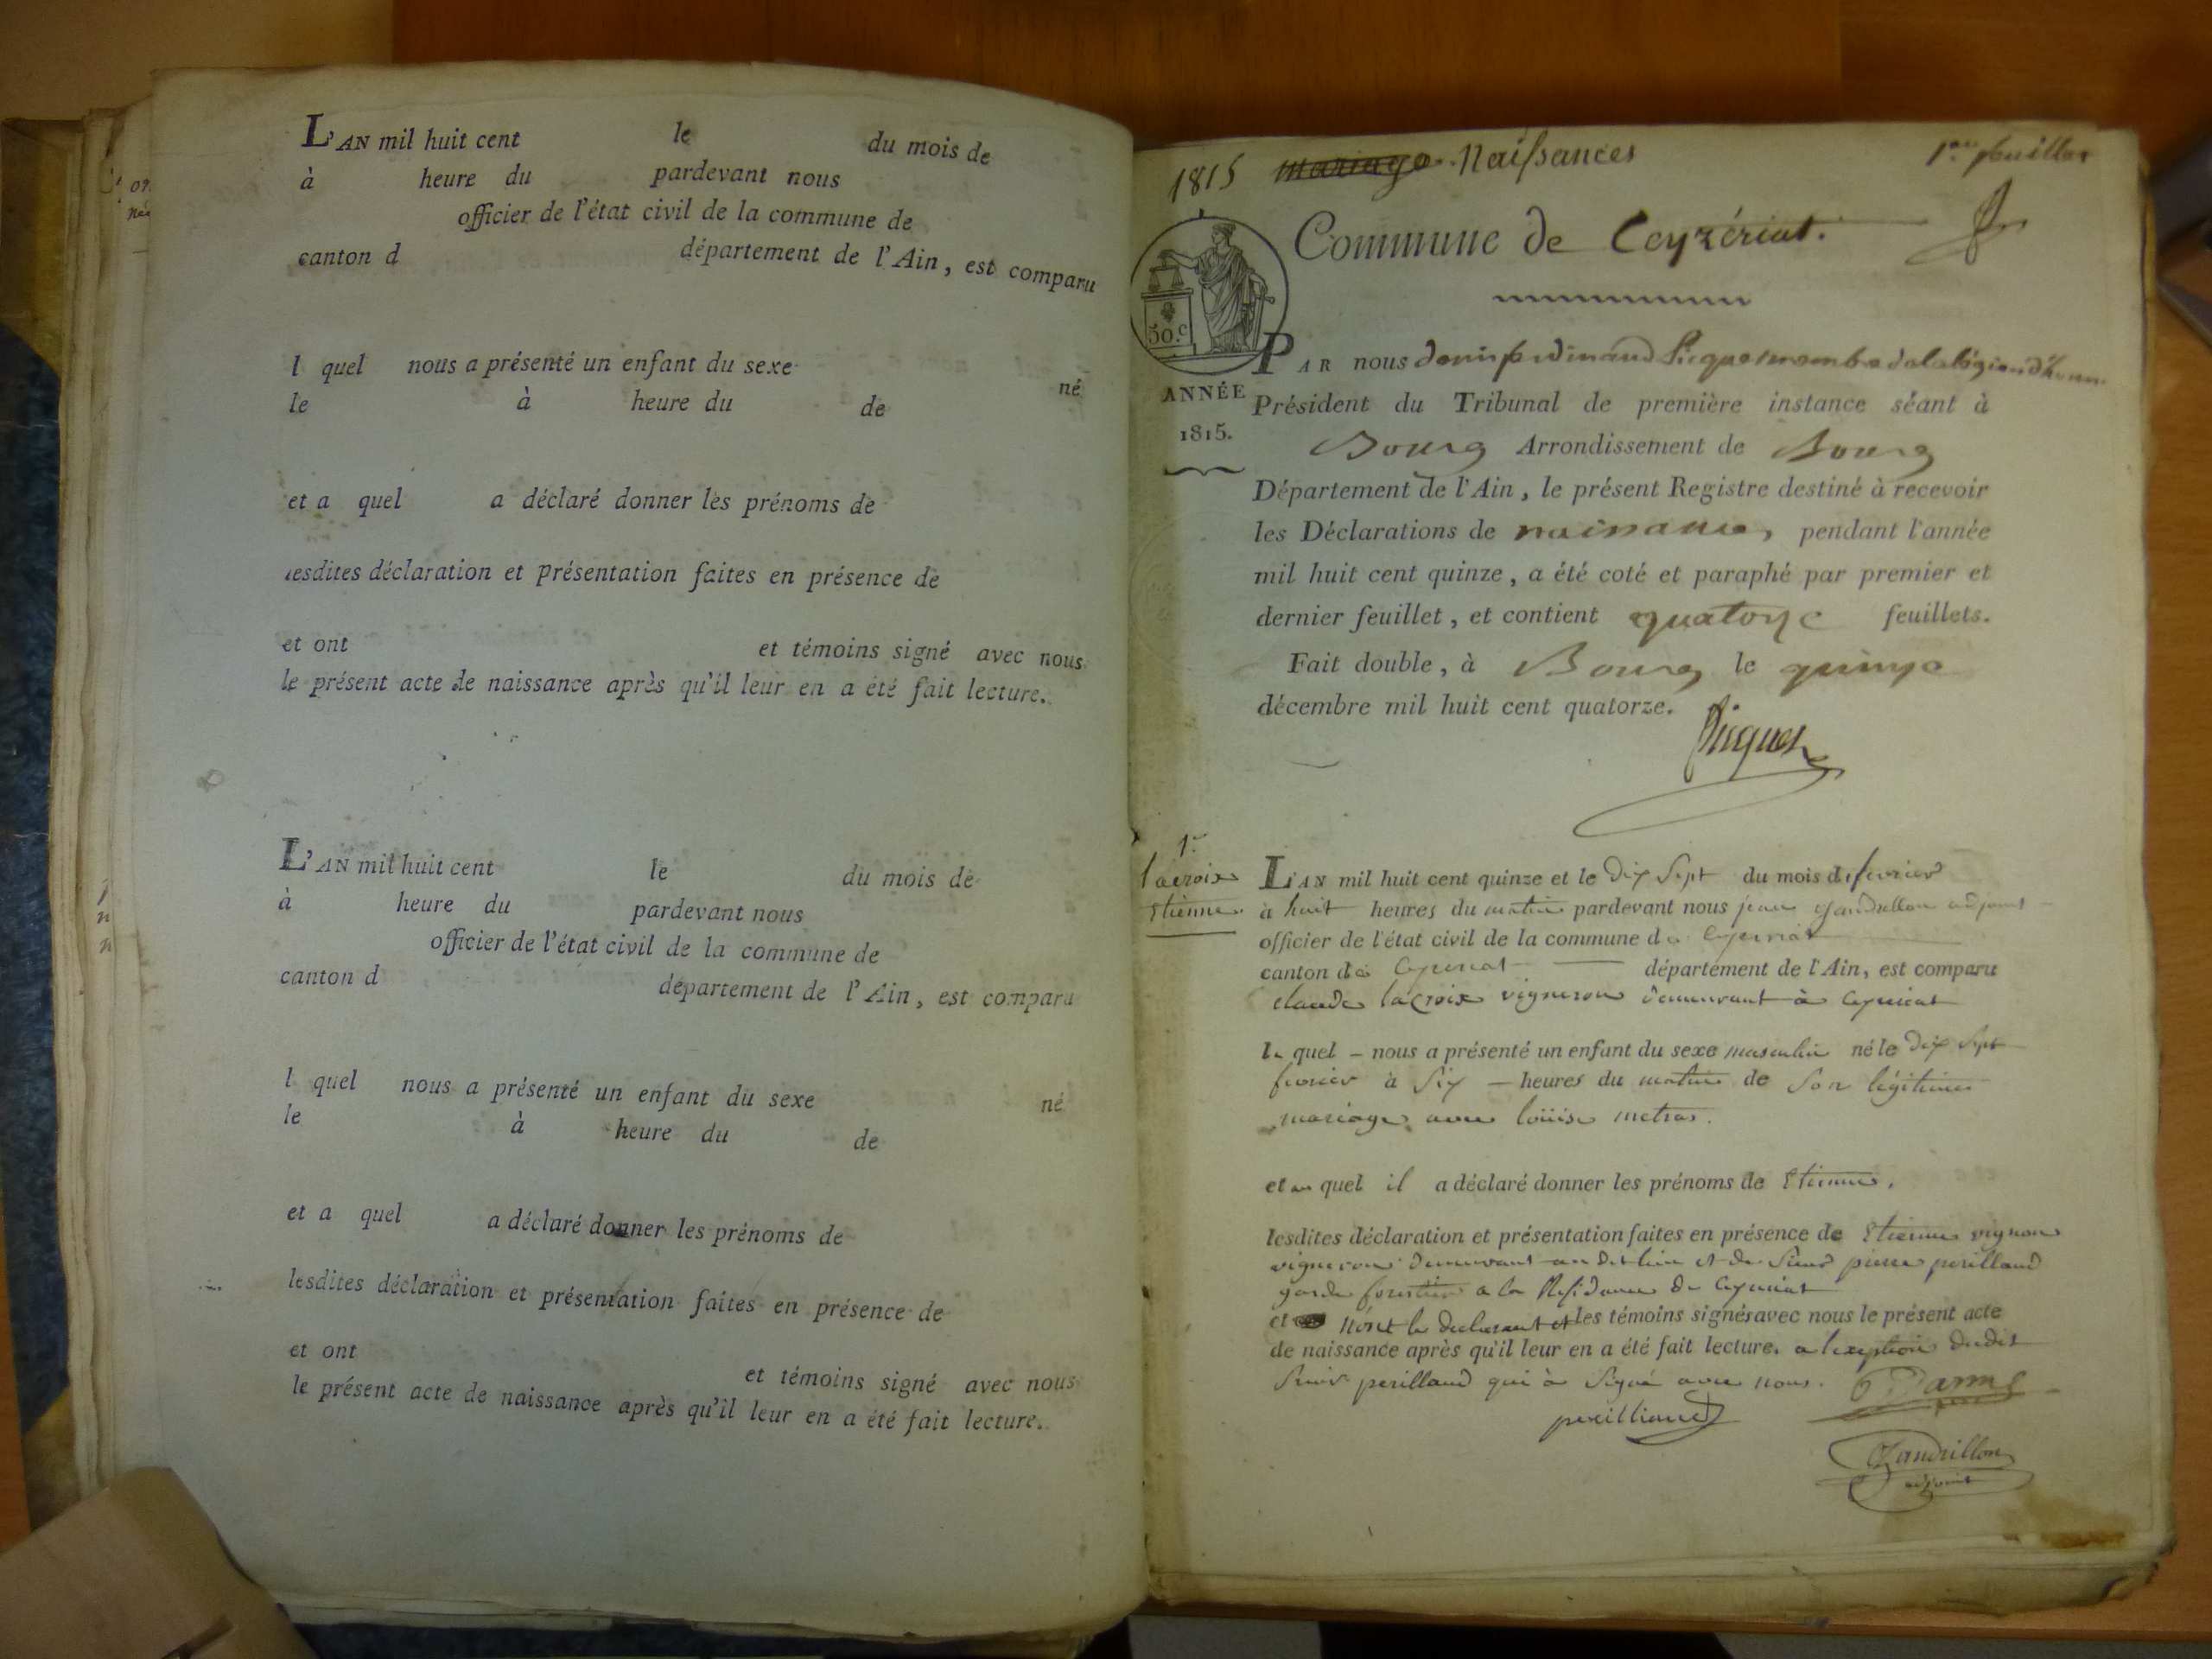 L'AN mil huit cent le du mois de
à heure du pardevant nous
officier de l'état civil de la commune de
canton d département de l'Ain, est comparu
l quel nous a présenté un enfant du sexe né
le à heure du de
et a quel a déclaré donner les prénoms de
lesdites déclaration et présentation faites en présence de
et ont et témoins signé avec nous
le présent acte de naissance après qu'il leur en a été fait lecture.
L'AN mil huit cent le du mois de
à heure du pardevant nous
officier de l'état civil de la commune de
canton d département de l'Ain, est comparu
l quel nous a présenté un enfant du sexe né
le à heure du de
et a quel a déclaré donner les prénoms de
lesdites déclaration et présentation faites en présence de
et ont et témoins signé avec nous
le présent acte de naissance après qu'il leur en a été fait lecture.
1815 mariage Naissances 1er feuillet
Commune de Ceyzériat.
50.c
PAR nous denis ferdinand Picquet membre de la légion d'honn
ANNÉE
1815.
Président du Tribunal de première instance séant à
Bourg Arrondissement de Bourg
Département de l'Ain, le présent Registre destiné à recevoir
les Déclarations de naissance, pendant l'année
mil huit cent quinze, a été coté et paraphé par premier et
dernier feuillet, et contient quatorze feuillets.
Fait double, à Bourg le quinze
décembre mil huit cent quatorze.
Picquet
1er
lacroix
Etienne
L'AN mil huit cent quinze et le dix sept du mois de fevrier
à huit heures du matin pardevant nous jean gandrillon adjoint
officier de l'état civil de la commune de Ceyzeriat
canton de Ceyzeriat département de l'Ain, est comparu
claude lacroix vigneron demeurant à Ceyzeriat
le quel nous a présenté un enfant du sexe masculin né le dix sept
fevrier à six heures du matin de son légitime
mariage avec loüise metras.
et au quel il a déclaré donner les prénoms de Etienne.
lesdites déclaration et présentation faites en présence de Etienne vignon
vigneron demeurant au dit lieu et de sieur pierre perilland
garde forestier a la Residance de Ceyzeriat
et n'ont le declarant et les témoins signés avec nous le présent acte
de naissance après qu'il leur en a été fait lecture. a lexeption dudit
sieur perilland qui à signé avec nous.
perilliand
Gandrillon
adjoint